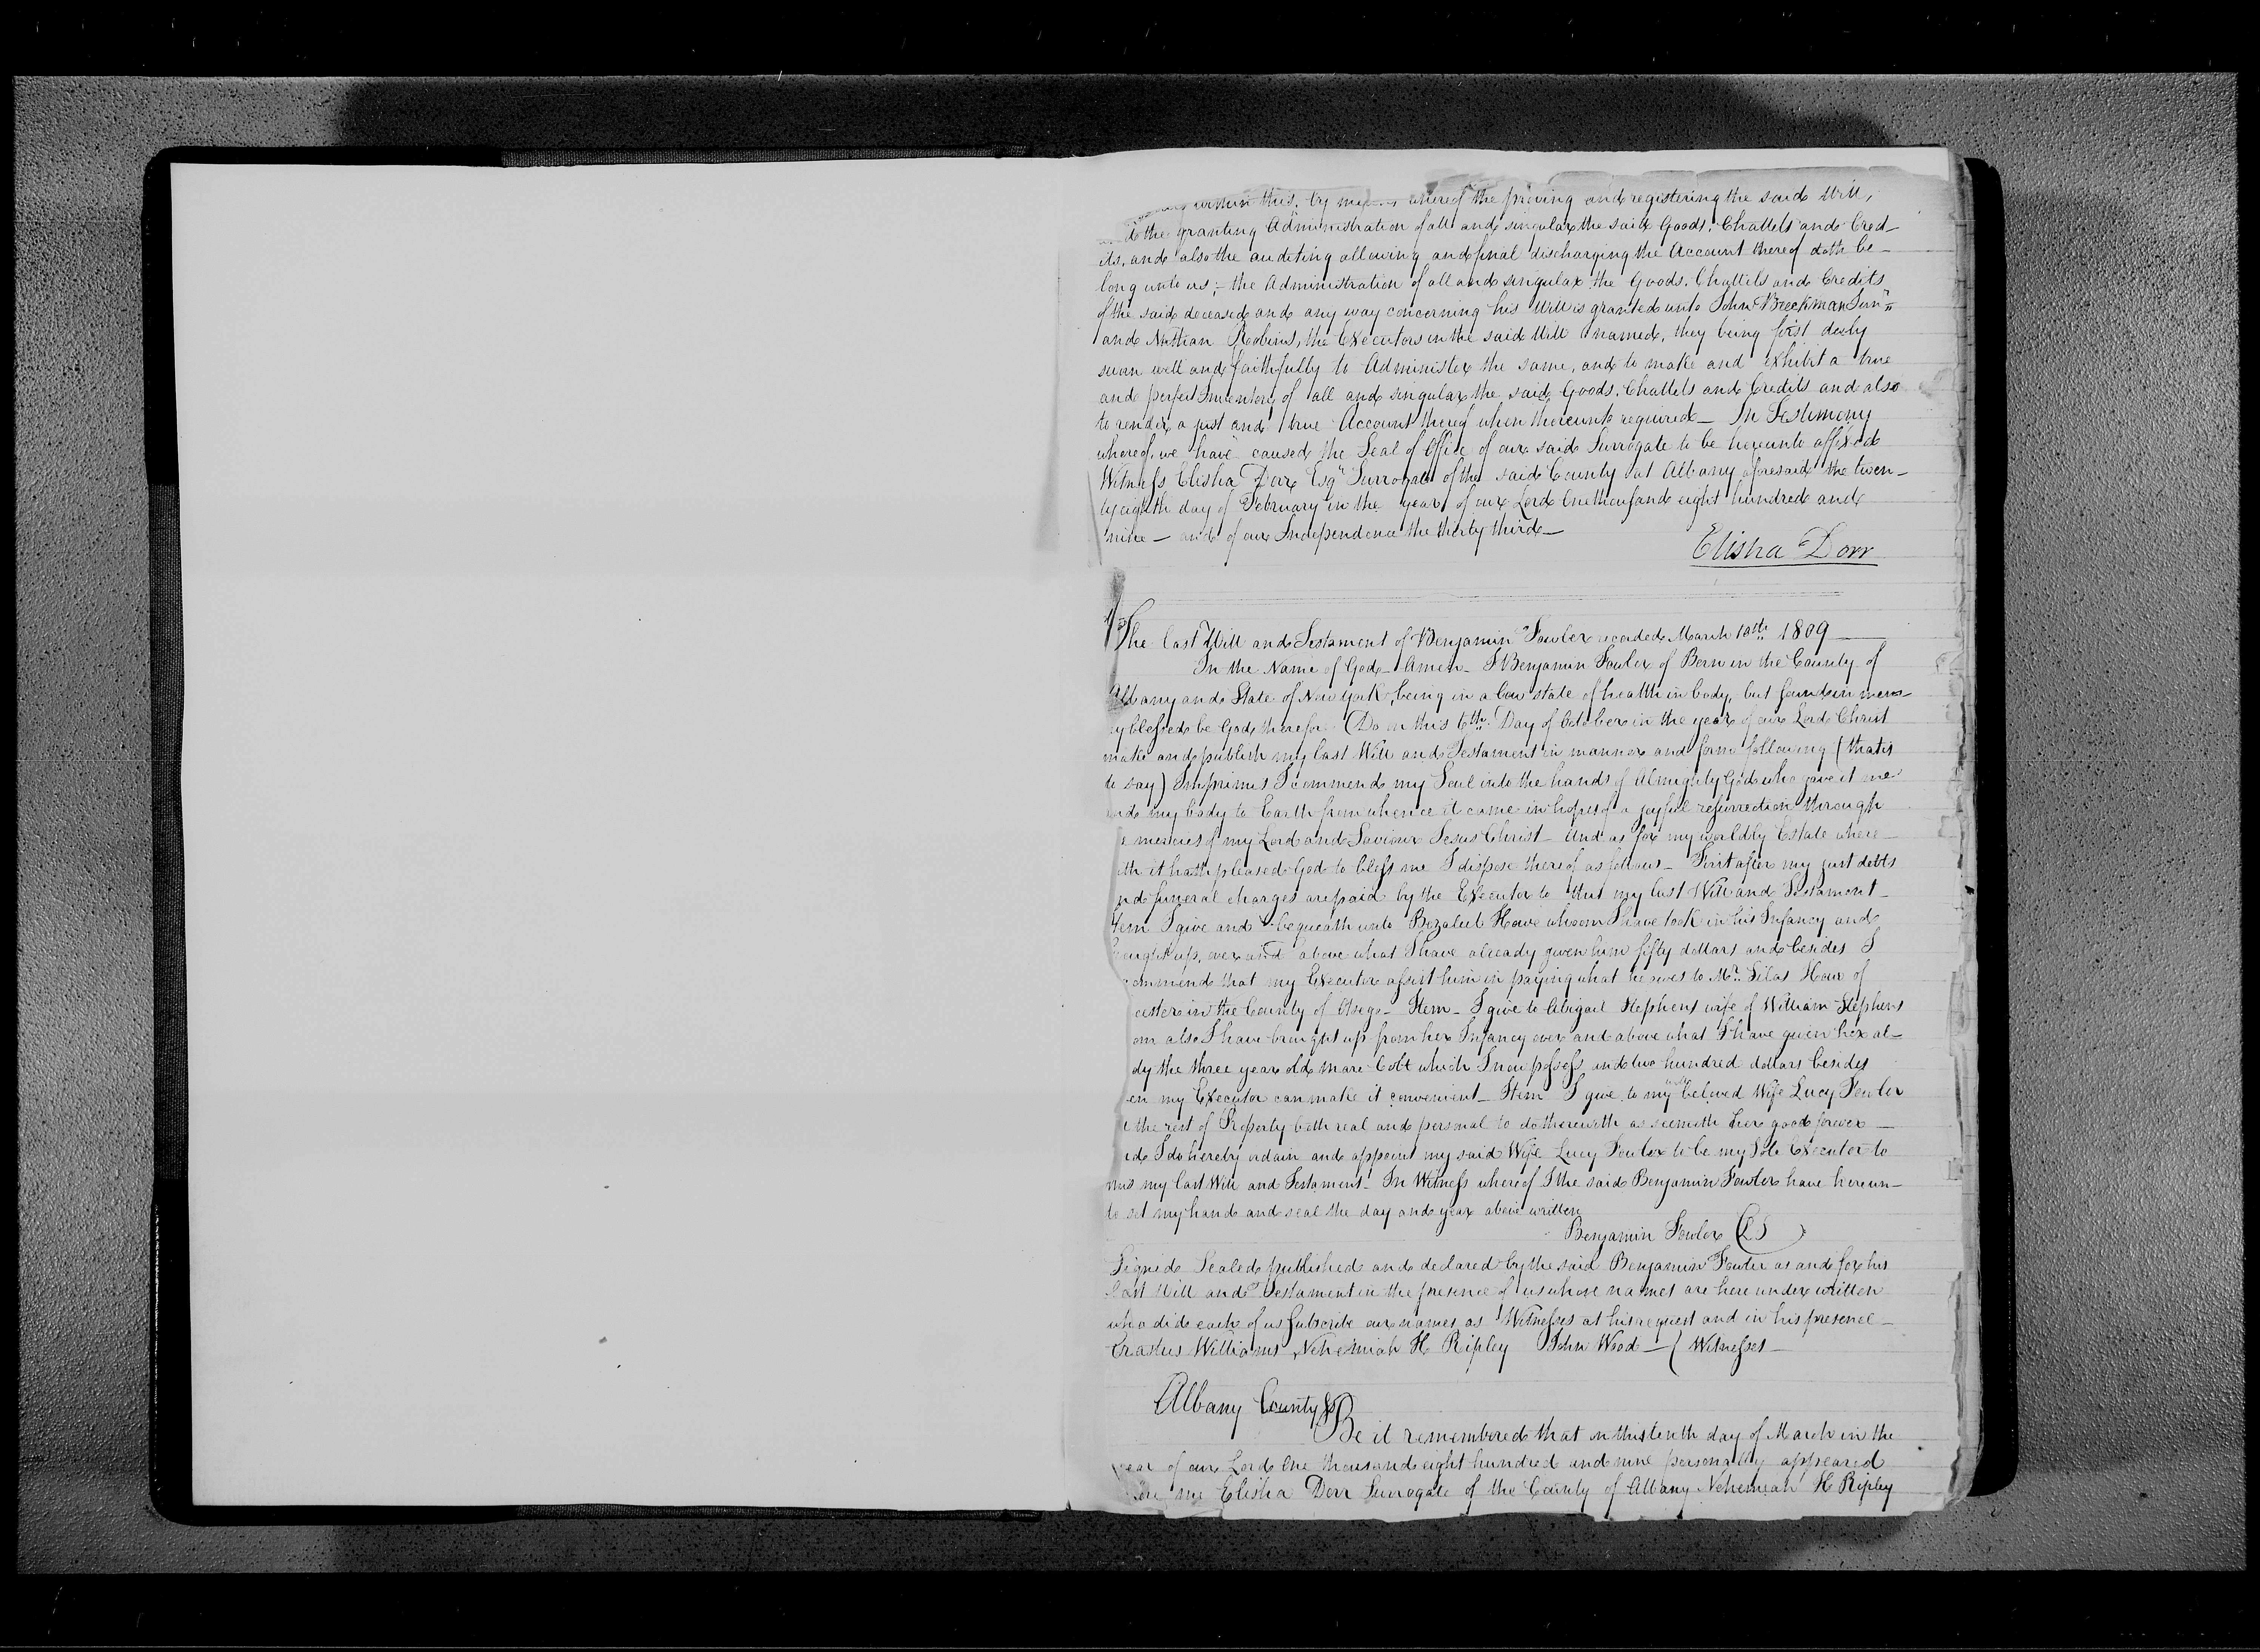 within this. by means whereof the proving and registering the said Will,
d the granting Administration of all and singular the said Goods, Chattels and Cred–
its, and also the auditing allowing and final discharging the Account thereof doth be–
long unto us;– the Administration of all and singular the Goods, Chattels and Credits
of the said deceased and any way concerning his Will is granted unto John Beeckman Junr
and Nathan Robins, the Executors in the said Will named, they being first duly
sworn well and faithfully to Administer the same, and to make and exhibit a true
and perfect Inventory of all and singular the said Goods, Chattels and Credits and also
to render a just and true Account thereof when thereunto required– In Testimony
whereof, we have caused the Seal of Office of our said Surrogate to be hereunto affixed
Witness Elisha Dorr Esqr Surrogate of the said County at Albany aforesaid the twen–
ty eighth day of February in the year of our Lord One thousand eight hundred and
nine – and of our Independence the thirty third–
Elisha Dorr
The last Will and Testament of Benjamin Fowler recorded March 10th 1809
In the Name of God– Amen– I Benjamin Fowler of Bern in the County of
Albany and State of New York, being in a low state of health in body, but sound in mem–
ry blessed be God therefor. Do on this 6th Day of October in the year of our Lord Christ
make and publish my last Will and Testament in manner and form following (that is
to say) Imprimis I commend my Soul into the hands of Almighty God who gave it me
and my body to Earth from whence it came in hopes of a joyful resurrection through
e mercies of my Lord and Saviour Jesus Christ– And as for my worldly Estate where–
ith it hath pleased God to bless me I dispose thereof as follows– First after my just debts
nd funeral charges are paid by the Executor to this my last Will and Testament–
tem I give and bequeath unto Bezaleel Howe whoom I have took in his Infancy and
brought up, over and above what I have already given him fifty dollars and besides I
commend that my Executor assist him in paying what he owes to Mr. Silas Howe of
cester in the County of Otsego– Item– I give to Abigail Stephens wife of William Stephens
om also I have brought up from her Infancy over and above what I have given her al–
dy the three year old mare Colt which I now possess and two hundred dollars besides
en my Executor can make it convenient– Item I give to my well beloved Wife Lucy Fowler
l the rest of Property both real and personal to do therewith as seemeth her good forever–
nd I do hereby ordain and appoint my said Wife Lucy Fowler to be my Sole Executor to
this my last Will and Testament– In Witness whereof I the said Benjamin Fowler have hereun–
to set my hand and seal the day and year above written
Benjamin Fowler (LS)
Signed Sealed published and declared by the said Benjamin Fowler as and for his
last Will and Testament in the presence of us whose names are here under written
who did each of us subscribe our names as Witnesses at his request and in his presence–
Erastus Williams, Nehemiah H Ripley John Wood –( Witnesses–
Albany County Ss
Be it remembered that on this tenth day of March in the
year of our Lord One thousand eight hundred and nine personally appeared
fore me Elisha Dorr Surrogate of the County of Albany Nehemiah H Ripley